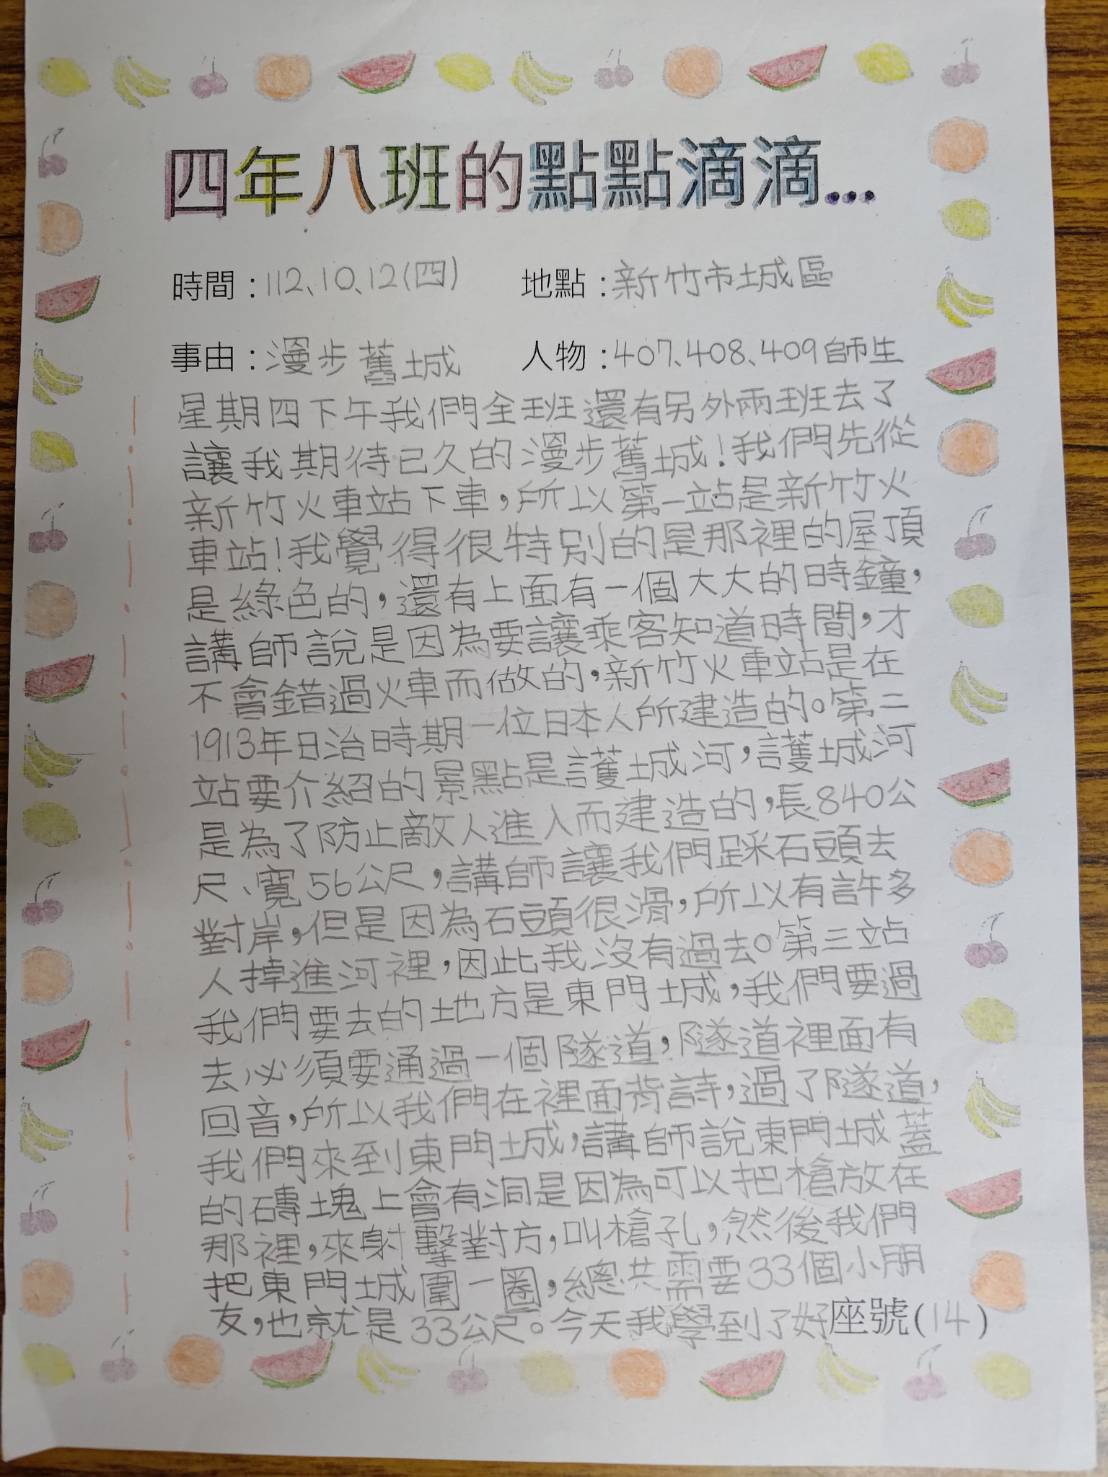 四年八班的點點滴滴...
時間：112、10、12(四) 地點：新竹市城區
事由：漫步舊城 人物：407、408、409師生
星期四下午我們全班還有另外兩班去了
讓我期待已久的漫步舊城！我們先從
新竹火車站下車，所以第一站是新竹火
車站！我覺得很特別的是那裡的屋頂
是綠色的，還有上面有一個大大的時鐘，
講師說是因為要讓乘客知道時間，才
不會錯過火車而做的，新竹火車站是在
1913年日治時期一位日本人所建造的。第二
站要介紹的景點是護城河，護城河
是為了防止敵人進入而建造的，長840公
尺、寬56公尺，講師讓我們踩石頭去
對岸，但是因為石頭很滑，所以有許多
人掉進河裡，因此我沒有過去。第三站
我們要去的地方是東門城，我們要過
去必須要通過一個隧道，隧道裡面有
回音，所以我們在裡面背詩，過了隧道，
我們來到東門城，講師說東門城蓋
的磚塊上會有洞是因為可以把槍放在
那裡，來射擊對方，叫槍孔，然後我們
把東門城圍一圈，總共需要33個小朋
友，也就是33公尺。今天我學到了好座號(14)